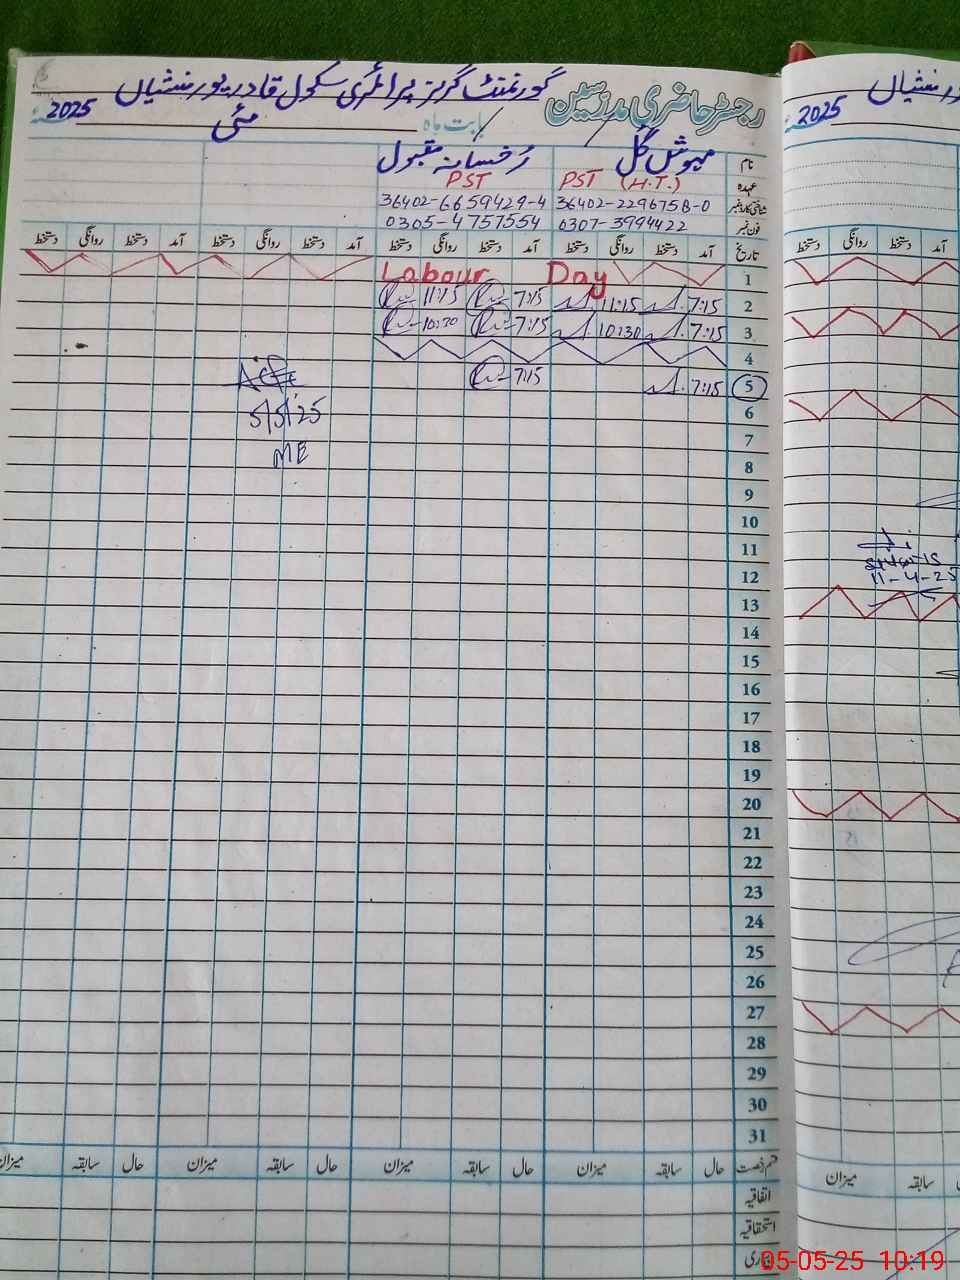 گورنمنٹ گرلز پرائمری سکول قادر پور منشیاں
رجسٹر حاضری مدرسین
بابت ماہ مئی 2025
نام مہوش گل رخسانہ مقبول
عہدہ PST (H.T.) PST
شناختی کارڈ نمبر 36402-2296758-0 36402-6659429-4
فون نمبر 0307-3994422 0305-4757554
تاریخ آمد دستخط روانگی دستخط آمد دستخط روانگی دستخط آمد دستخط روانگی دستخط آمد دستخط روانگی دستخط
1 Labour Day
2 7:15 11:15 7:15 11:15
3 7:15 10:30 7:15 10:30
4
5 7:15 7:15
6
5/5/25
7
ME
8
9
10
11
12
13
14
15
16
17
18
19
20
21
22
23
24
25
26
27
28
29
30
31
قسم رخصت حال سابقہ میزان حال سابقہ میزان حال سابقہ میزان حال سابقہ میزان
اتفاقیہ
استحقاقیہ
2025
دستخط روانگی دستخط
11-4-25
سابقہ میزان
05-05-25 10:19